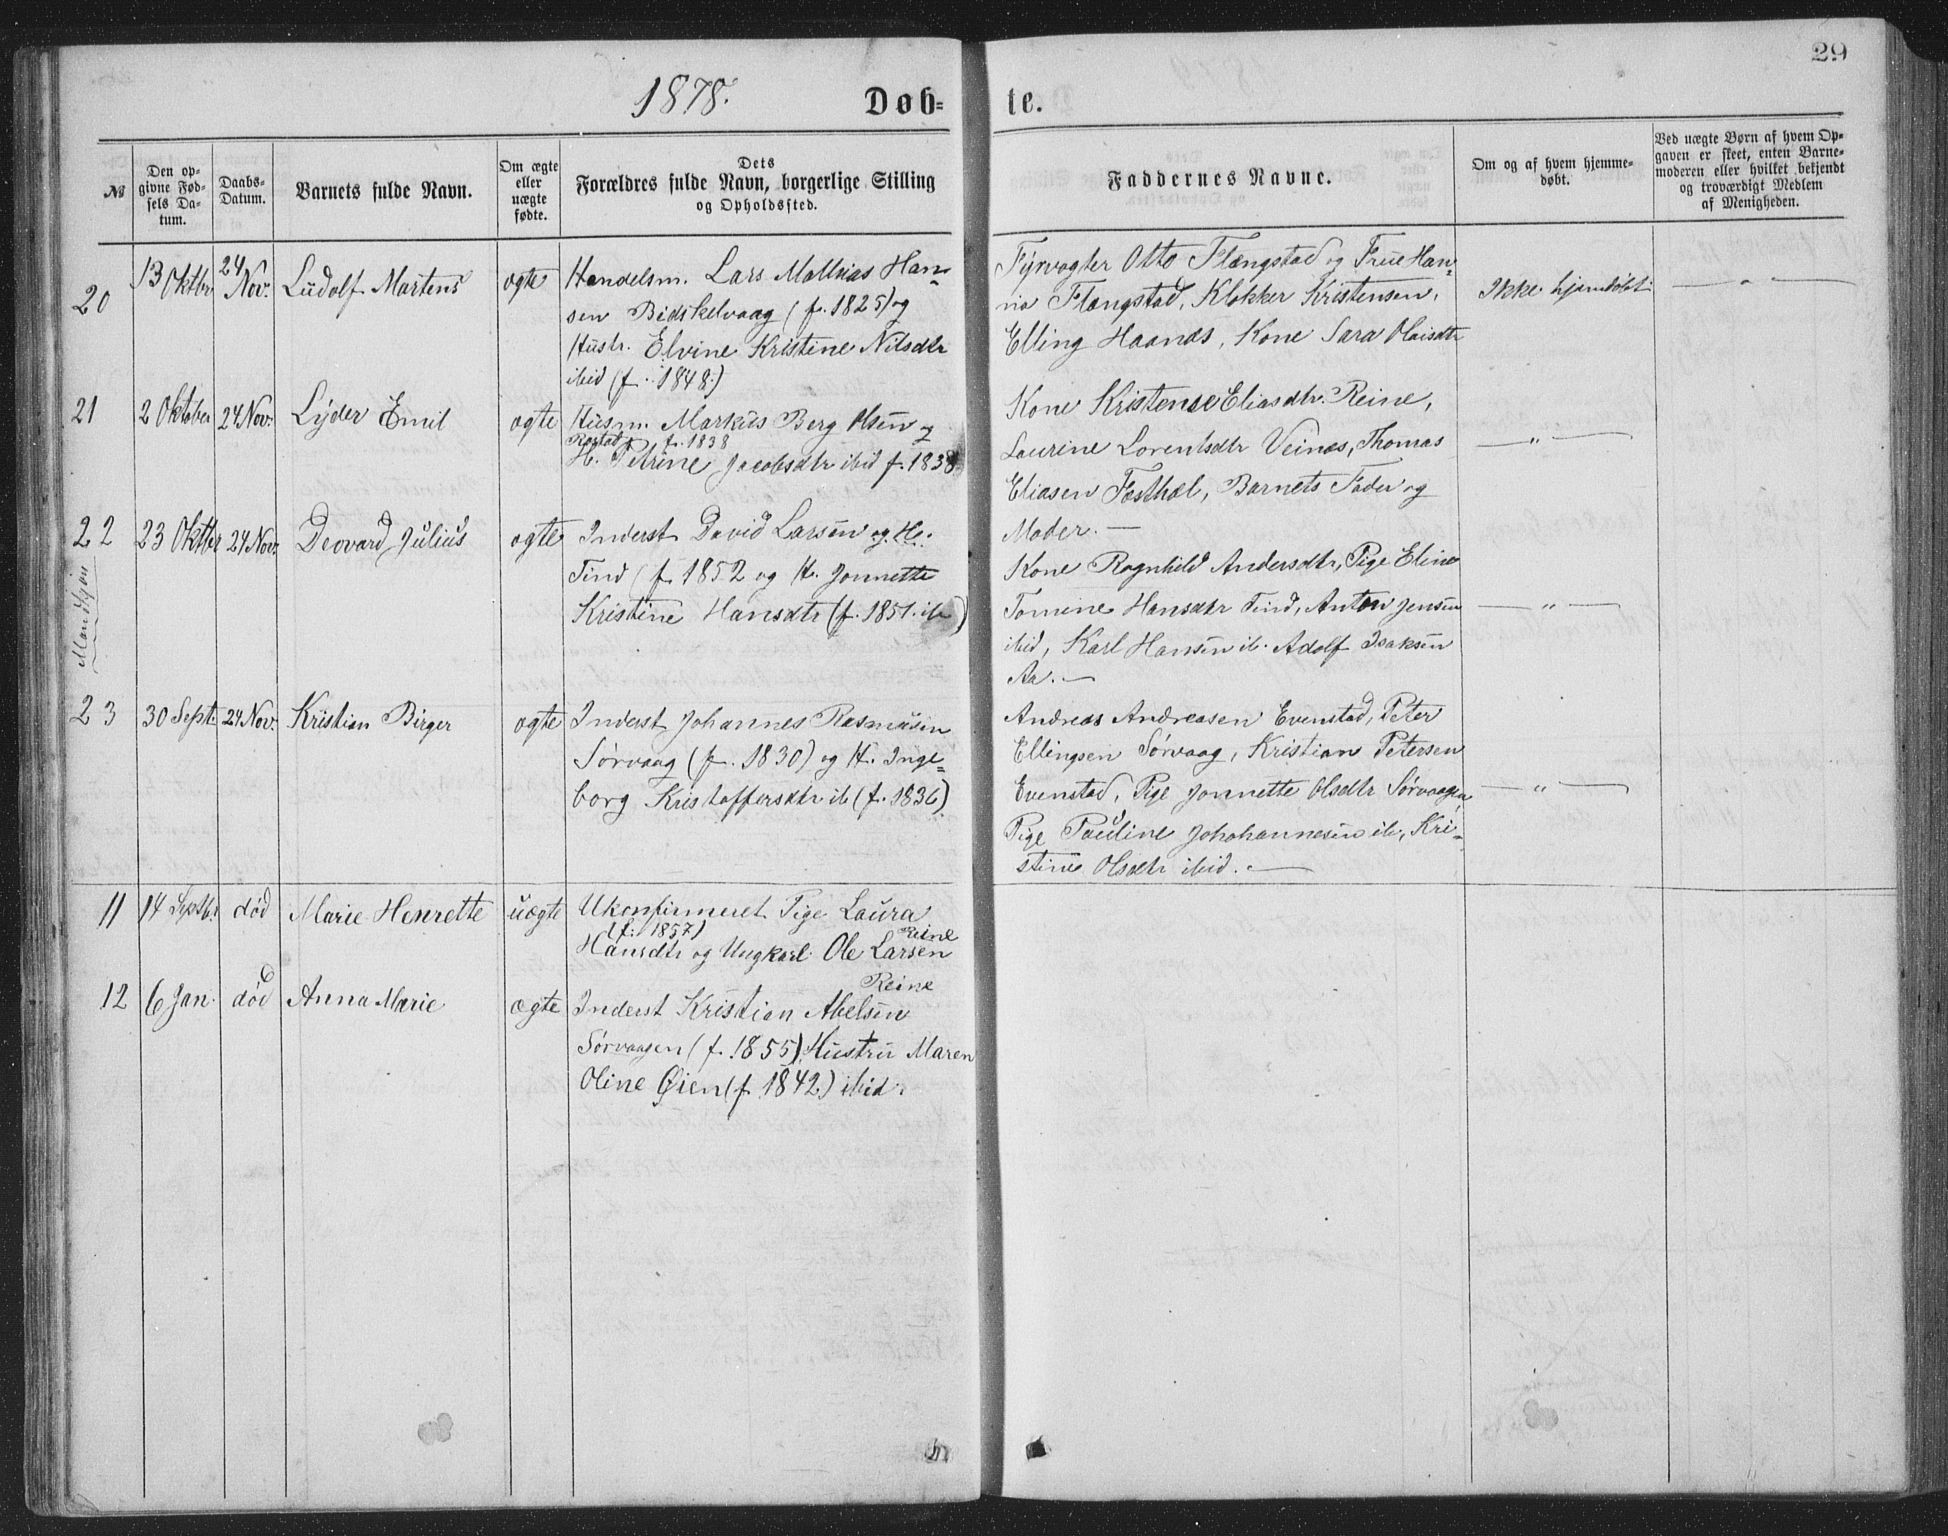 29
1878.
Døb=
te.
№
Den op=
givne Fød=
sels Da=
tum.
Daabs=
Datum.
Barnets fulde Navn.
Om ægte
eller
uægte
fødte.
Dets
Forældres fulde Navn, borgerlige Stilling
og Opholdssted.
Faddernes Navne.
Om og af hvem hjemme=
døbt.
Ved uægte Børn af hvem Op=
gaven er skeet, enten Barne=
moderen eller hvilket bekjendt
og troværdigt Medlem
af Menigheden.
20
13 Oktbr
24
Nov.
Ludolf Martens
ægte
Handelsm. Lars Mathias Han=
sen Bidskelvaag (f. 1825) og
Hustr. Elvine Kristine Nilsdtr
ibid (f. 1848.)
Fyrvogter Otto Flængstad og Frue Han=
na Flængstad, Klokker Kristensen,
Elling Haanæs, Kone Sara Olaisdtr
Ikke hjemdöbt.
— " —
21
2 Oktober
24 Nov.
Lyder Emil
ægte
Husm. Markus Berg Olsen og
f. 1838
H. Petrine Jacobsdtr ibid f. 1838
Kone Kristense Eliasdtr. Reine,
Laurine Lorentsdtr Veinæs, Thomas
Eliasen Festhæl, Barnets Fader og
Moder. —
— " —
22
23 Oktbr
24 Nov.
Deovard Julius
ægte
Inderst David Larsen og H.
Tind (f. 1852 og H. Jonnette
Kristine Hansdtr (f. 1851. ib)
Kone Ragnhild Andersdtr, Pige Eline
Tomine Hansdtr Tind, Anton Jensen
ibid, Karl Hansen ib. Adolf Isaksen
Aa. —
— " —
Mandkjøn
23
30 Sept.
24 Nov.
Kristian Birger
ægte
Inderst Johannes Rasmusen
Sørvaag (f. 1830) og H. Inge=
borg Kristoffersdtr ib (f. 1836)
Andreas Andreasen Evenstad, Peter
Ellingsen Sørvaag, Kristian Petersen
Evenstad, Pige Jonnette Olsdtr Sørvaagen,
Pige Pauline Johohannesen ib, Kri=
stine Olsdtr ibid. —
— " —
11
14 Septb.
død
Marie Henrette
uægte
Ukonfirmeret Pige Laura
(f. 1857) Reine
Hansdtr og Ungkarl Ole Larsen
Reine
12
6 Jan.
død
Anna Marie
ægte
Inderst Kristian Abelsen
Sørvaagen (f. 1855) Hustru Maren
Oline Øien (f. 1842.) ibid.